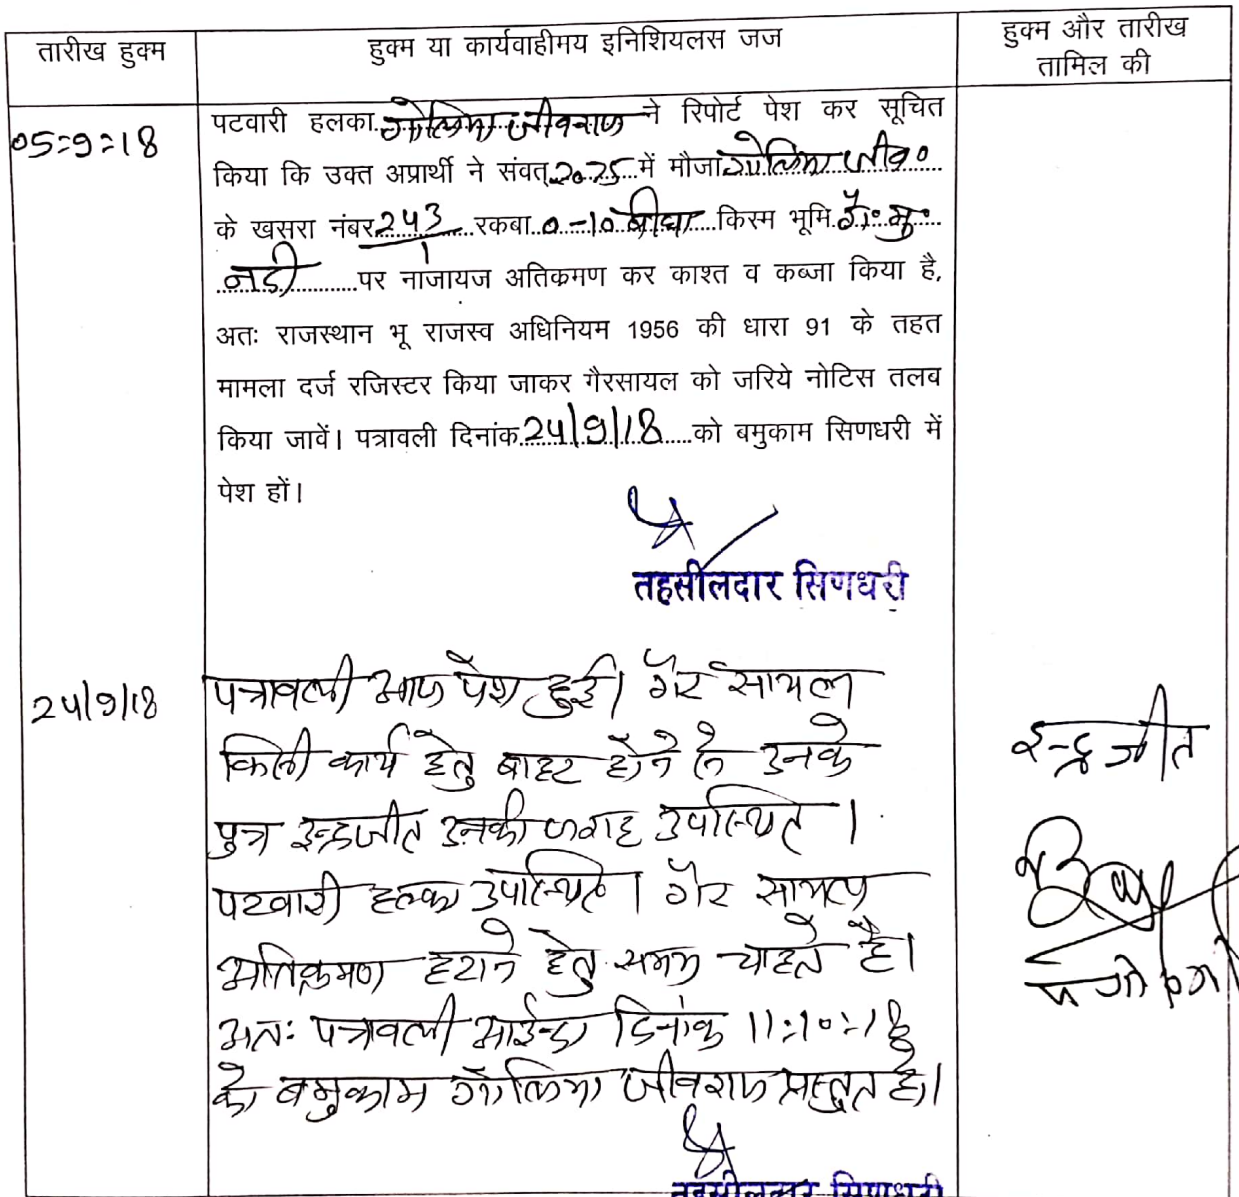 तारीख हुक्म
हुक्म या कार्यवाहीमय इनिशियलस जज
हुक्म और तारीख
तामिल की
05=9=18
पटवारी हलका गोलिया जीवराज ने रिपोर्ट पेश कर सूचित
किया कि उक्त अप्रार्थी ने संवत् 2075 में मौजा गोलिया जीव०
के खसरा नंबर 243/1 रकबा 0-10 बीघा किस्म भूमि गै० मु०
नडी पर नाजायज अतिक्रमण कर काश्त व कब्जा किया है,
अतः राजस्थान भू राजस्व अधिनियम 1956 की धारा 91 के तहत
मामला दर्ज रजिस्टर किया जाकर गैरसायल को जरिये नोटिस तलब
किया जावें। पत्रावली दिनांक 24/9/18 को बमुकाम सिणधरी में
पेश हों।
तहसीलदार सिणधरी
24/9/18
पत्रावली आज पेश हुई। गैर सायल
किसी कार्य हेतु बाहर होने से उनके
पुत्र इन्द्रजीत उनकी जगह उपस्थित ।
पटवारी हल्का उपस्थित । गैर सायल
अतिक्रमण हटाने हेतु समय चाहते है।
अतः पत्रावली आईन्दा दिनांक 11:10:18
को बमुकाम गोलिया जीवराज प्रस्तुत हो।
इन्द्रजीत
तहसीलदार सिणधरी